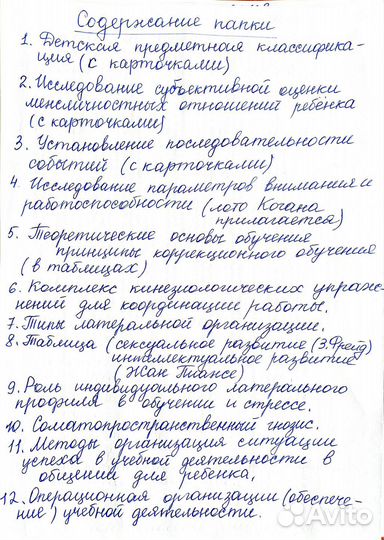 Содержание папки
1. Детская предметная классифика-
ция (с карточками)
2. Исследование субъективной оценки
межличностных отношений ребёнка
(с карточками)
3. Установление последовательности
событий (с карточками)
4. Исследование параметров внимания и
работоспособности (лото Когана
прилагается)
5. Теоретические основы обучения
принципы коррекционного обучения
(в таблицах)
6. Комплекс кинезиологических упраж-
нений для координации работы.
7. Типы латеральной организации.
8. Таблица (сексуальное развитие (З.Фрейд)
интеллектуальное развитие
(Жан Пиансе)
9. Роль индивидуального латерального
профиля в обучении и стрессе.
10. Соматопространственный гнозис.
11. Методы организация ситуации
успеха в учебной деятельности в
общении для ребенка.
12. Операционная организации (обеспече-
ние) учебной деятельности.
Avito